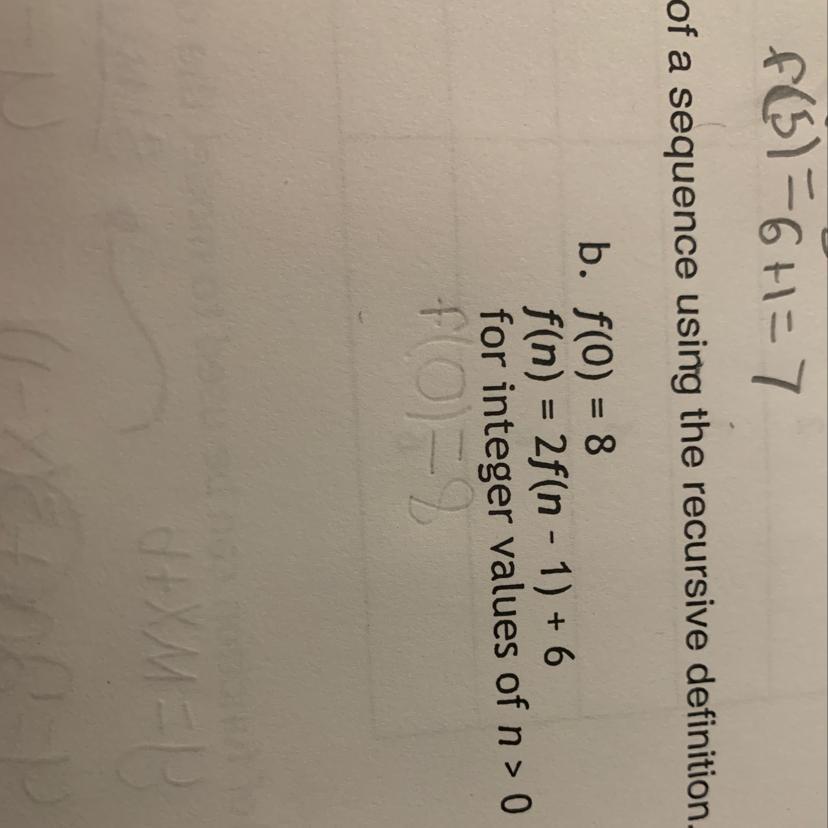 f(5) = 6 + 1 = 7
of a sequence using the recursive definition.
b. f(0) = 8
f(n) = 2f(n - 1) + 6
for integer values of n > 0
f(0) = 8